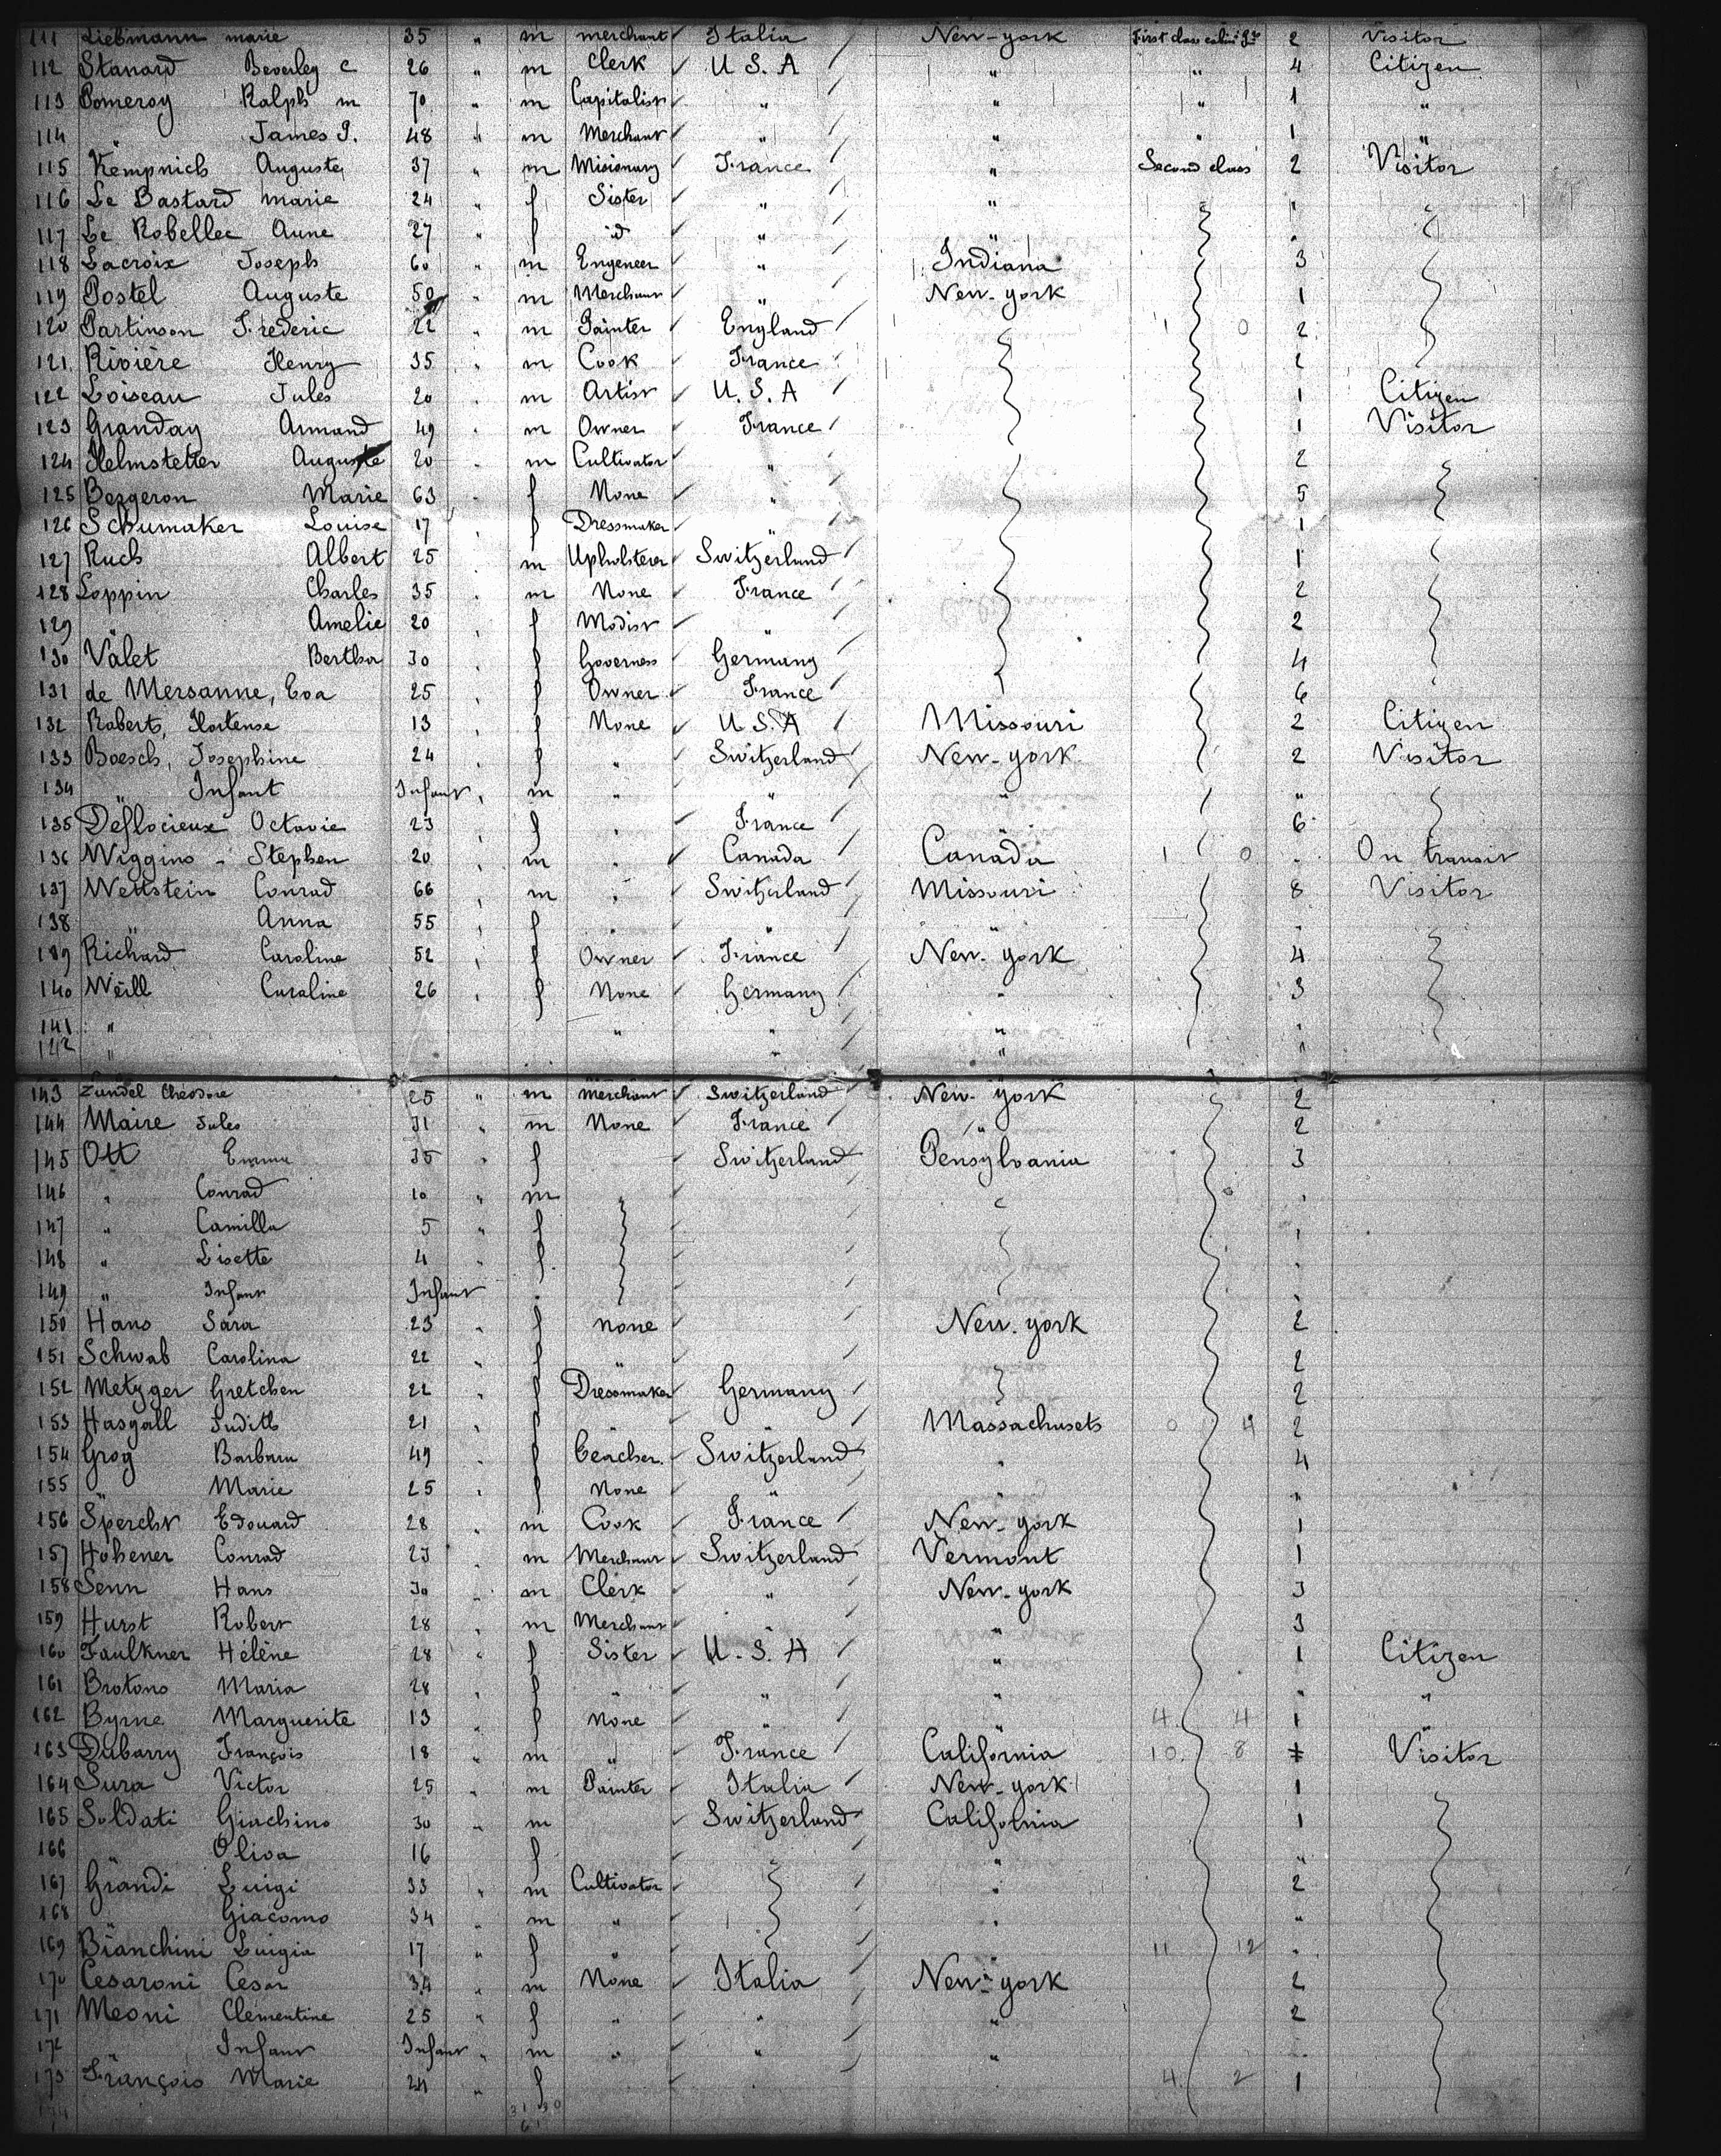 111 Liebmann marie 35 " m merchant Italia New-york First class cabin 2 Visitor
112 Stanard Beverley C 26 " m Clerk U.S.A " " 4 Citizen
113 Pomeroy Ralph m 70 " m Capitalist " " " 1 "
114 " James J. 48 " m Merchant " " " 1 "
115 Kempnich Auguste 37 " m Misionary France " Second class 2 Visitor
116 Le Bastard marie 24 " f Sister " " "
117 Le Robellec Anne 27 " f id " " "
118 Lacroix Joseph 60 " m Engeneer " Indiana 3
119 Postel Auguste 50 " m Merchant " New-york 1
120 Partinson Frederic 22 " m Painter England 1 0 2
121 Rivière Henry 35 " m Cook France 2
122 Loiseau Jules 20 " m Artist U.S.A 1 Citizen
123 Granday Armand 49 " m Owner France 1 Visitor
124 Helmstetter Auguste 20 " m Cultivator " 2
125 Bergeron Marie 63 " f None " 5
126 Schumaker Louise 17 " f Dressmaker " 1
127 Ruch Albert 25 " m Upholsterer Switzerland 1
128 Loppin Charles 35 " m None France 2
129 " Amelie 20 " f Modist " 2
130 Valet Bertha 30 " f Governess Germany 4
131 de Mersanne, Eva 25 " f Owner France 6
132 Robert, Hortense 13 " f None U.S.A Missouri 2 Citizen
133 Boesch, Josephine 24 " f " Switzerland New-york 2 Visitor
134 " Infant Infant " m " " " "
135 Deflocieux Octavie 23 " f " France " 6
136 Wiggins - Stephen 20 " m " Canada Canada 1 0 " On transit
137 Wettstein Conrad 66 " m " Switzerland Missouri 8 Visitor
138 " Anna 55 " f " " " "
139 Richard Caroline 52 " f Owner France New-york 4
140 Weill Caroline 26 " f None Germany " 3
141 " " " " "
142 " " " " "
143 Zundel Theodore 25 " m merchant Switzerland New-york 2
144 Maire Jules 31 " m None France " 2
145 Ott Emma 35 " f Switzerland Pensylvania 3
146 " Conrad 10 " m "
147 " Camilla 5 " f "
148 " Lisette 4 " f "
149 " Infant Infant " "
150 Hans Sara 23 " f none New-york 2
151 Schwab Carolina 22 " f " 2
152 Metzger Gretchen 22 " f Dressmaker Germany 2
153 Hasgall Judith 21 " f " " Massachusets 0 4 2
154 Grog Barbara 49 " f teacher Switzerland " 4
155 " Marie 25 " f None " " "
156 Spercht Edouard 28 " m Cook France New-york 1
157 Hohener Conrad 23 " m Merchant Switzerland Vermont 1
158 Senn Hans 30 " m Clerk " New-york 3
159 Hurst Robert 28 " m Merchant " " 3
160 Faulkner Hélène 28 " f Sister U.S.A " 1 Citizen
161 Brotons Maria 28 " f " " " " "
162 Byrne Marguerite 13 " f None " " 4 4 1 "
163 Dubarry François 18 " m " France California 10 8 Visitor
164 Sura Victor 25 " m Painter Italia New-york 1
165 Soldati Giachino 30 " m Switzerland California 1
166 " Oliva 16 f " "
167 Grandi Luigi 33 " m Cultivator " 2
168 " Giacomo 34 " m " " "
169 Bianchini Luigia 17 " f " " 11 12 "
170 Cesaroni Cesar 34 " m None Italia New-york 2
171 Meoni Clementine 25 " f " " " 2
172 " Infant Infant " m " " " "
173 François Marie 24 " f 4 2 1
174 31 30
61